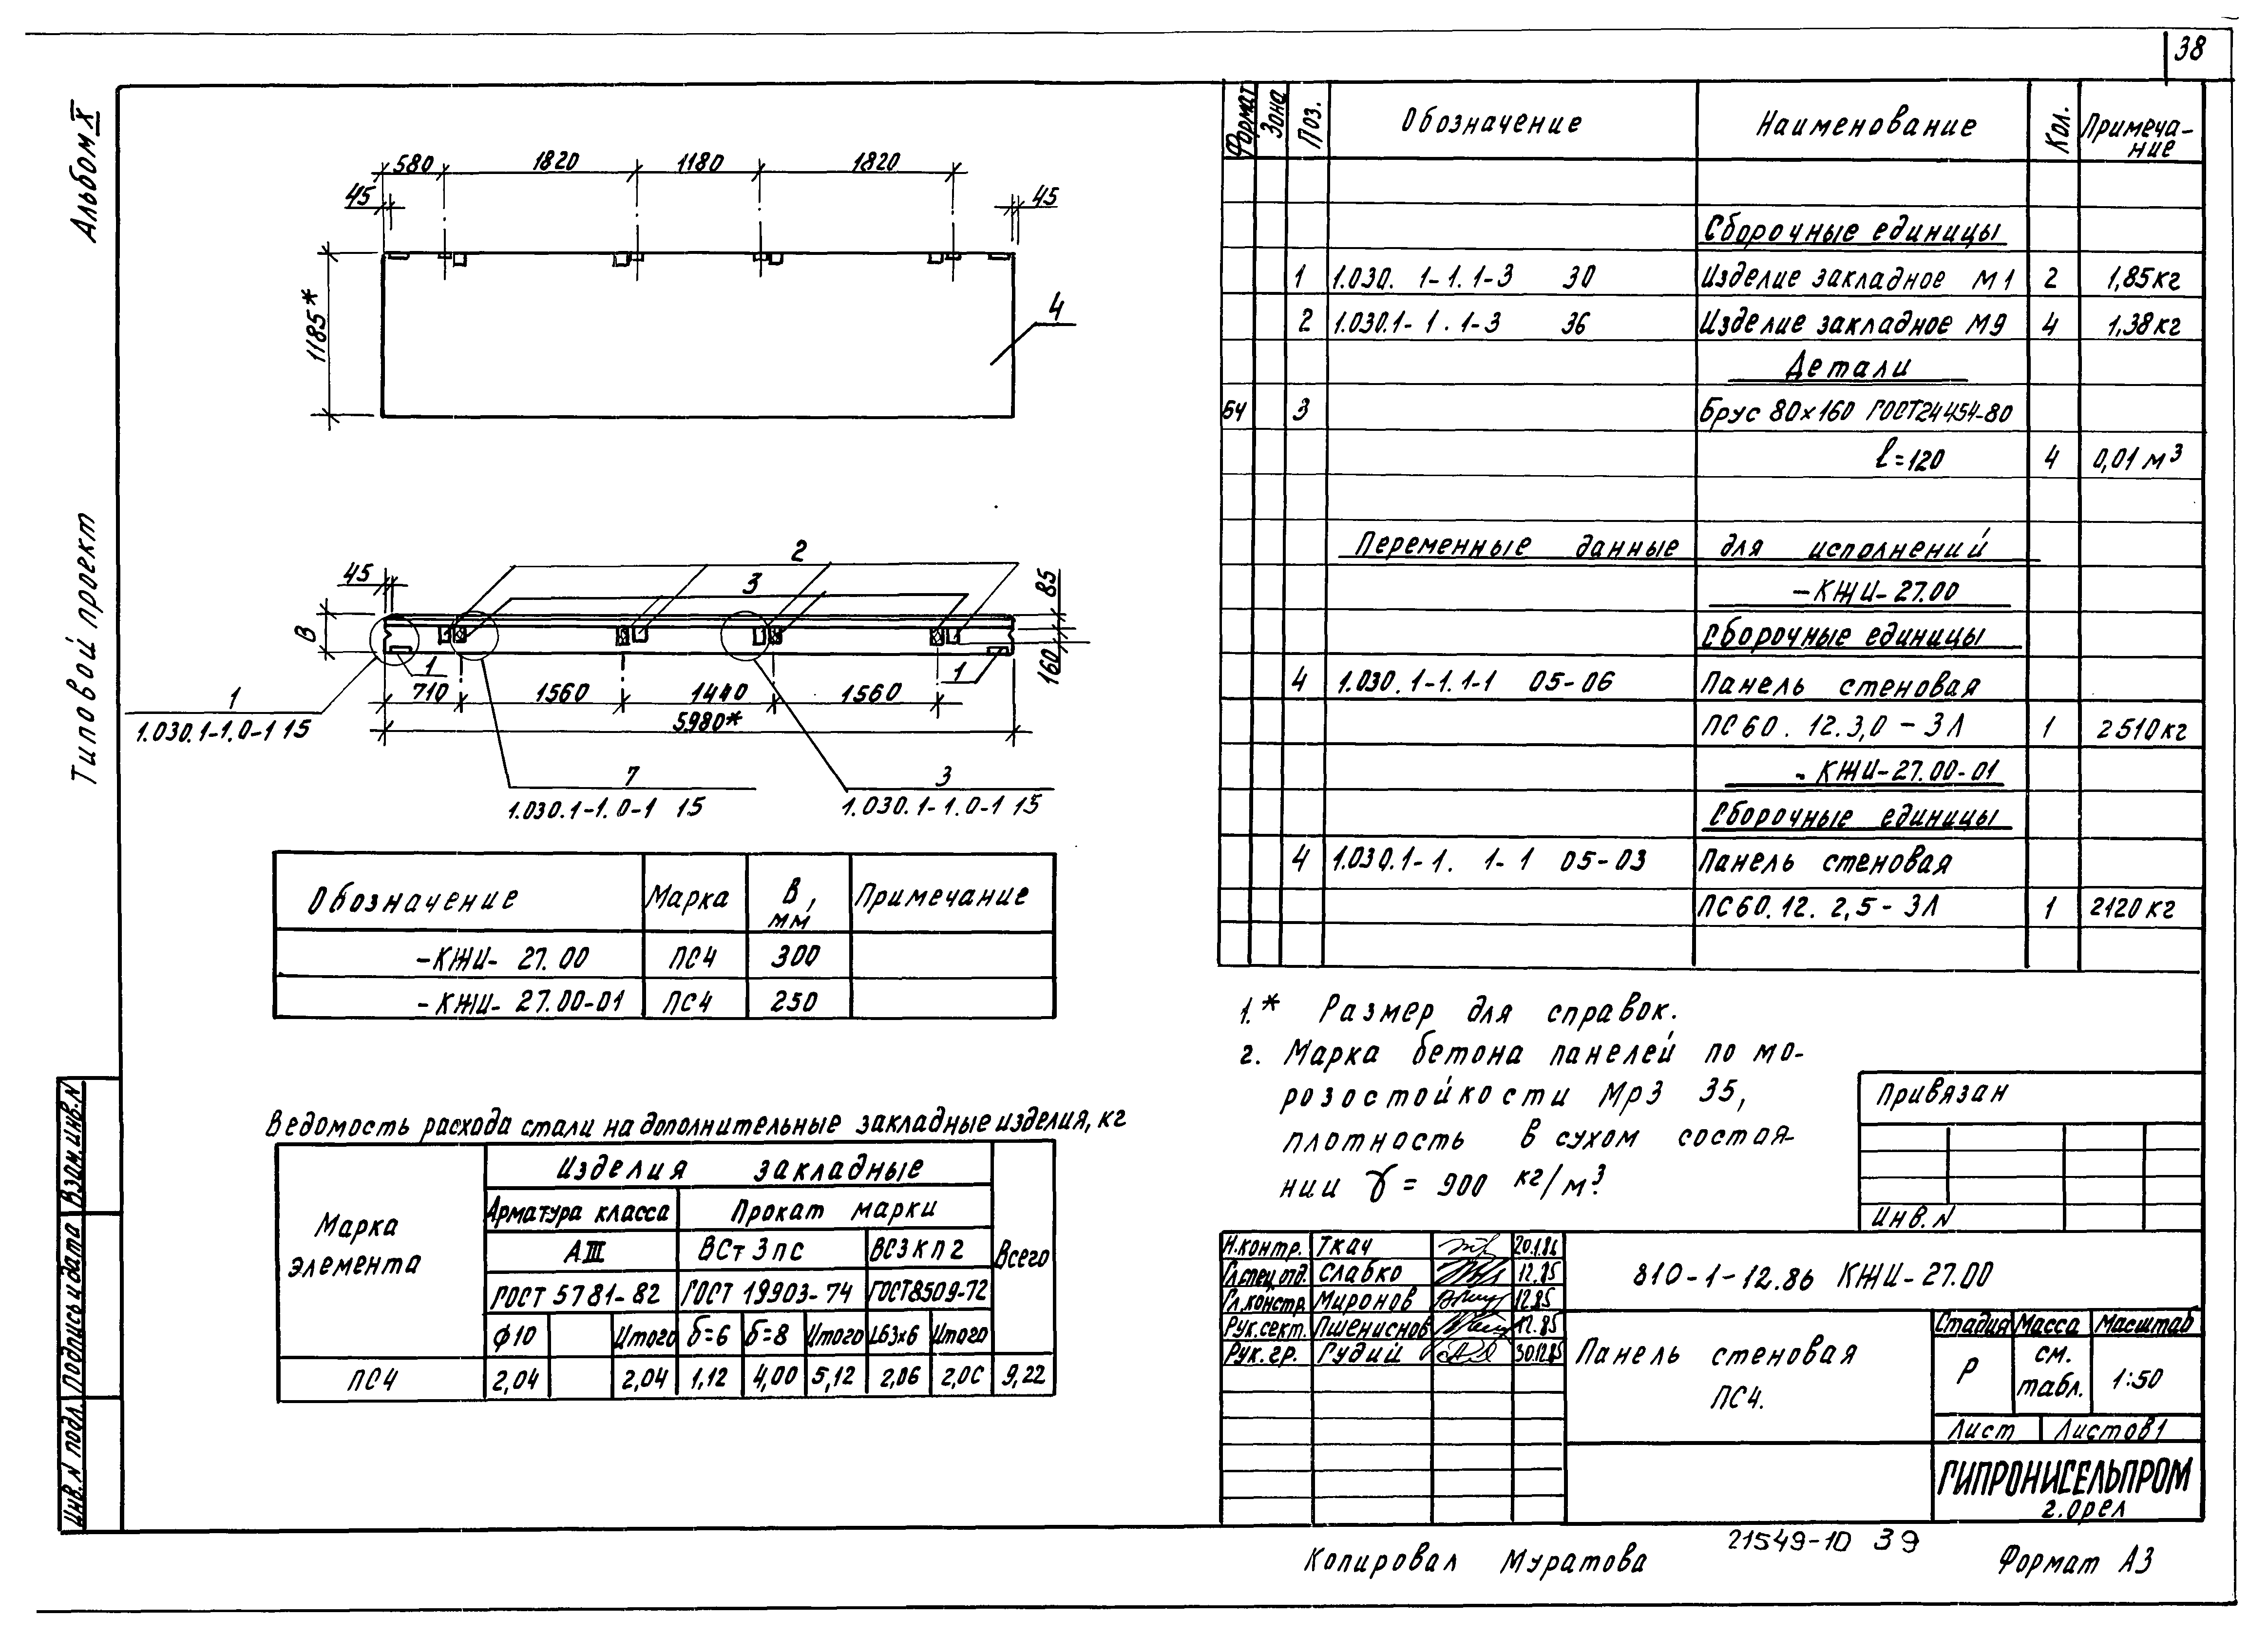 38
Альбом X
Типовой проект
580 1820 1180 1820
45 45
1185*
4
2
3
45
85
В
160
1 1
710 1560 1440 1560
5980*
1
1.030.1-1.0-1 15
7
1.030.1-1.0-1 15
3
1.030.1-1.0-1 15
Обозначение Марка В, мм Примечание
-КЖИ- 27.00 ПС4 300
-КЖИ- 27.00-01 ПС4 250
Ведомость расхода стали на дополнительные закладные изделия, кг
Марка элемента Изделия закладные Всего
Арматура класса Прокат марки
АIII ВСт 3 пс ВСЗ КП2
ГОСТ 5781-82 ГОСТ 19903-74 ГОСТ8509-72
ф10 Итого б=6 б=8 Итого L63х6 Итого
ПС4 2,04 2,04 1,12 4,00 5,12 2,06 2,0С 9,22
Формат Зона Поз. Обозначение Наименование Кол. Примеча-
ние
Сборочные единицы
1 1.030. 1-1.1-3 30 Изделие закладное М1 2 1,85кг
2 1.030.1-1.1-3 36 Изделие закладное М9 4 1,38кг
Детали
БЧ 3 Брус 80×160 ГОСТ24454-80
ℓ=120 4 0,01 м³
Переменные данные для исполнений
-КЖИ-27.00
Сборочные единицы
4 1.030.1-1.1-1 05-06 Панель стеновая
ПС60. 12.3,0 - 3Л 1 2510кг
- КЖИ-27.00-01
Сборочные единицы
4 1.030.1-1. 1-1 05-03 Панель стеновая
ПС60.12. 2,5 - 3Л 1 2120 кг
1.* Размер для справок.
2. Марка бетона панелей по мо-
розостойкости Мрз 35,
плотность в сухом состоя-
нии γ = 900 кг/м³.
Привязан
Инв. N
Н.контр. Ткач 20.1.86
Гл.спец.отд. Слабко 12.85
Гл.констр. Миронов 12.85
Рук.сект. Пшениснов 12.85
Рук. гр. Гудий 30.12.85
810-1-12.86 КЖИ-27.00
Панель стеновая
ПС4.
Стадия Масса Масштаб
Р см. табл. 1:50
Лист Листов 1
ГИПРОНИСЕЛЬПРОМ
г. Орел
Взам.инв.N
Подпись и дата
Инв.N подл.
21549-10 39
Копировал Муратова Формат А3